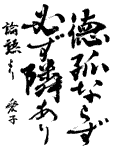 徳孤ならず
必ず隣あり
論語より
愛子